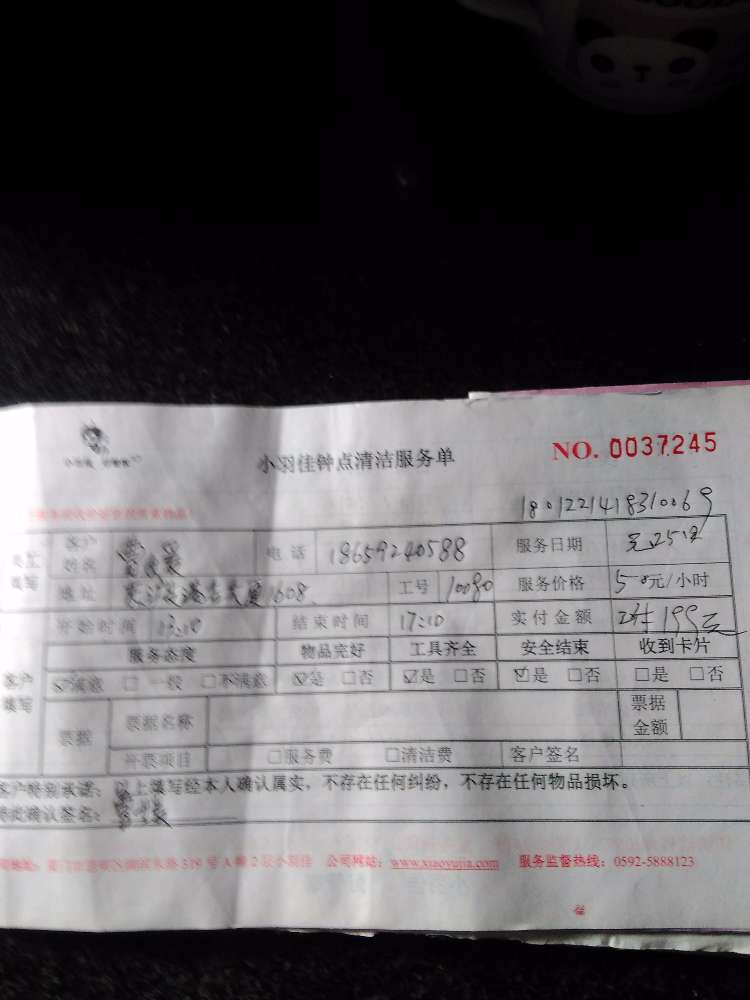 小羽佳钟点清洁服务单
NO. 0037245
1801221418310069
客户姓名 电话 18659240588 服务日期
地址 1608 工号 10080 服务价格 50元/小时
开始时间 13:10 结束时间 17:10 实付金额 199元
服务态度 物品完好 工具齐全 安全结束 收到卡片
客户填写 ☑满意 □一般 □不满意 ☑是 □否 ☑是 □否 ☑是 □否 □是 □否
票据 票据名称 票据金额
开票项目 □服务费 □清洁费 客户签名
客户特别承诺：以上填写经本人确认属实，不存在任何纠纷，不存在任何物品损坏。
确认签名：
319号A幢2层小羽佳 公司网站：www.xiaoyujia.com 服务监督热线：0592-5888123